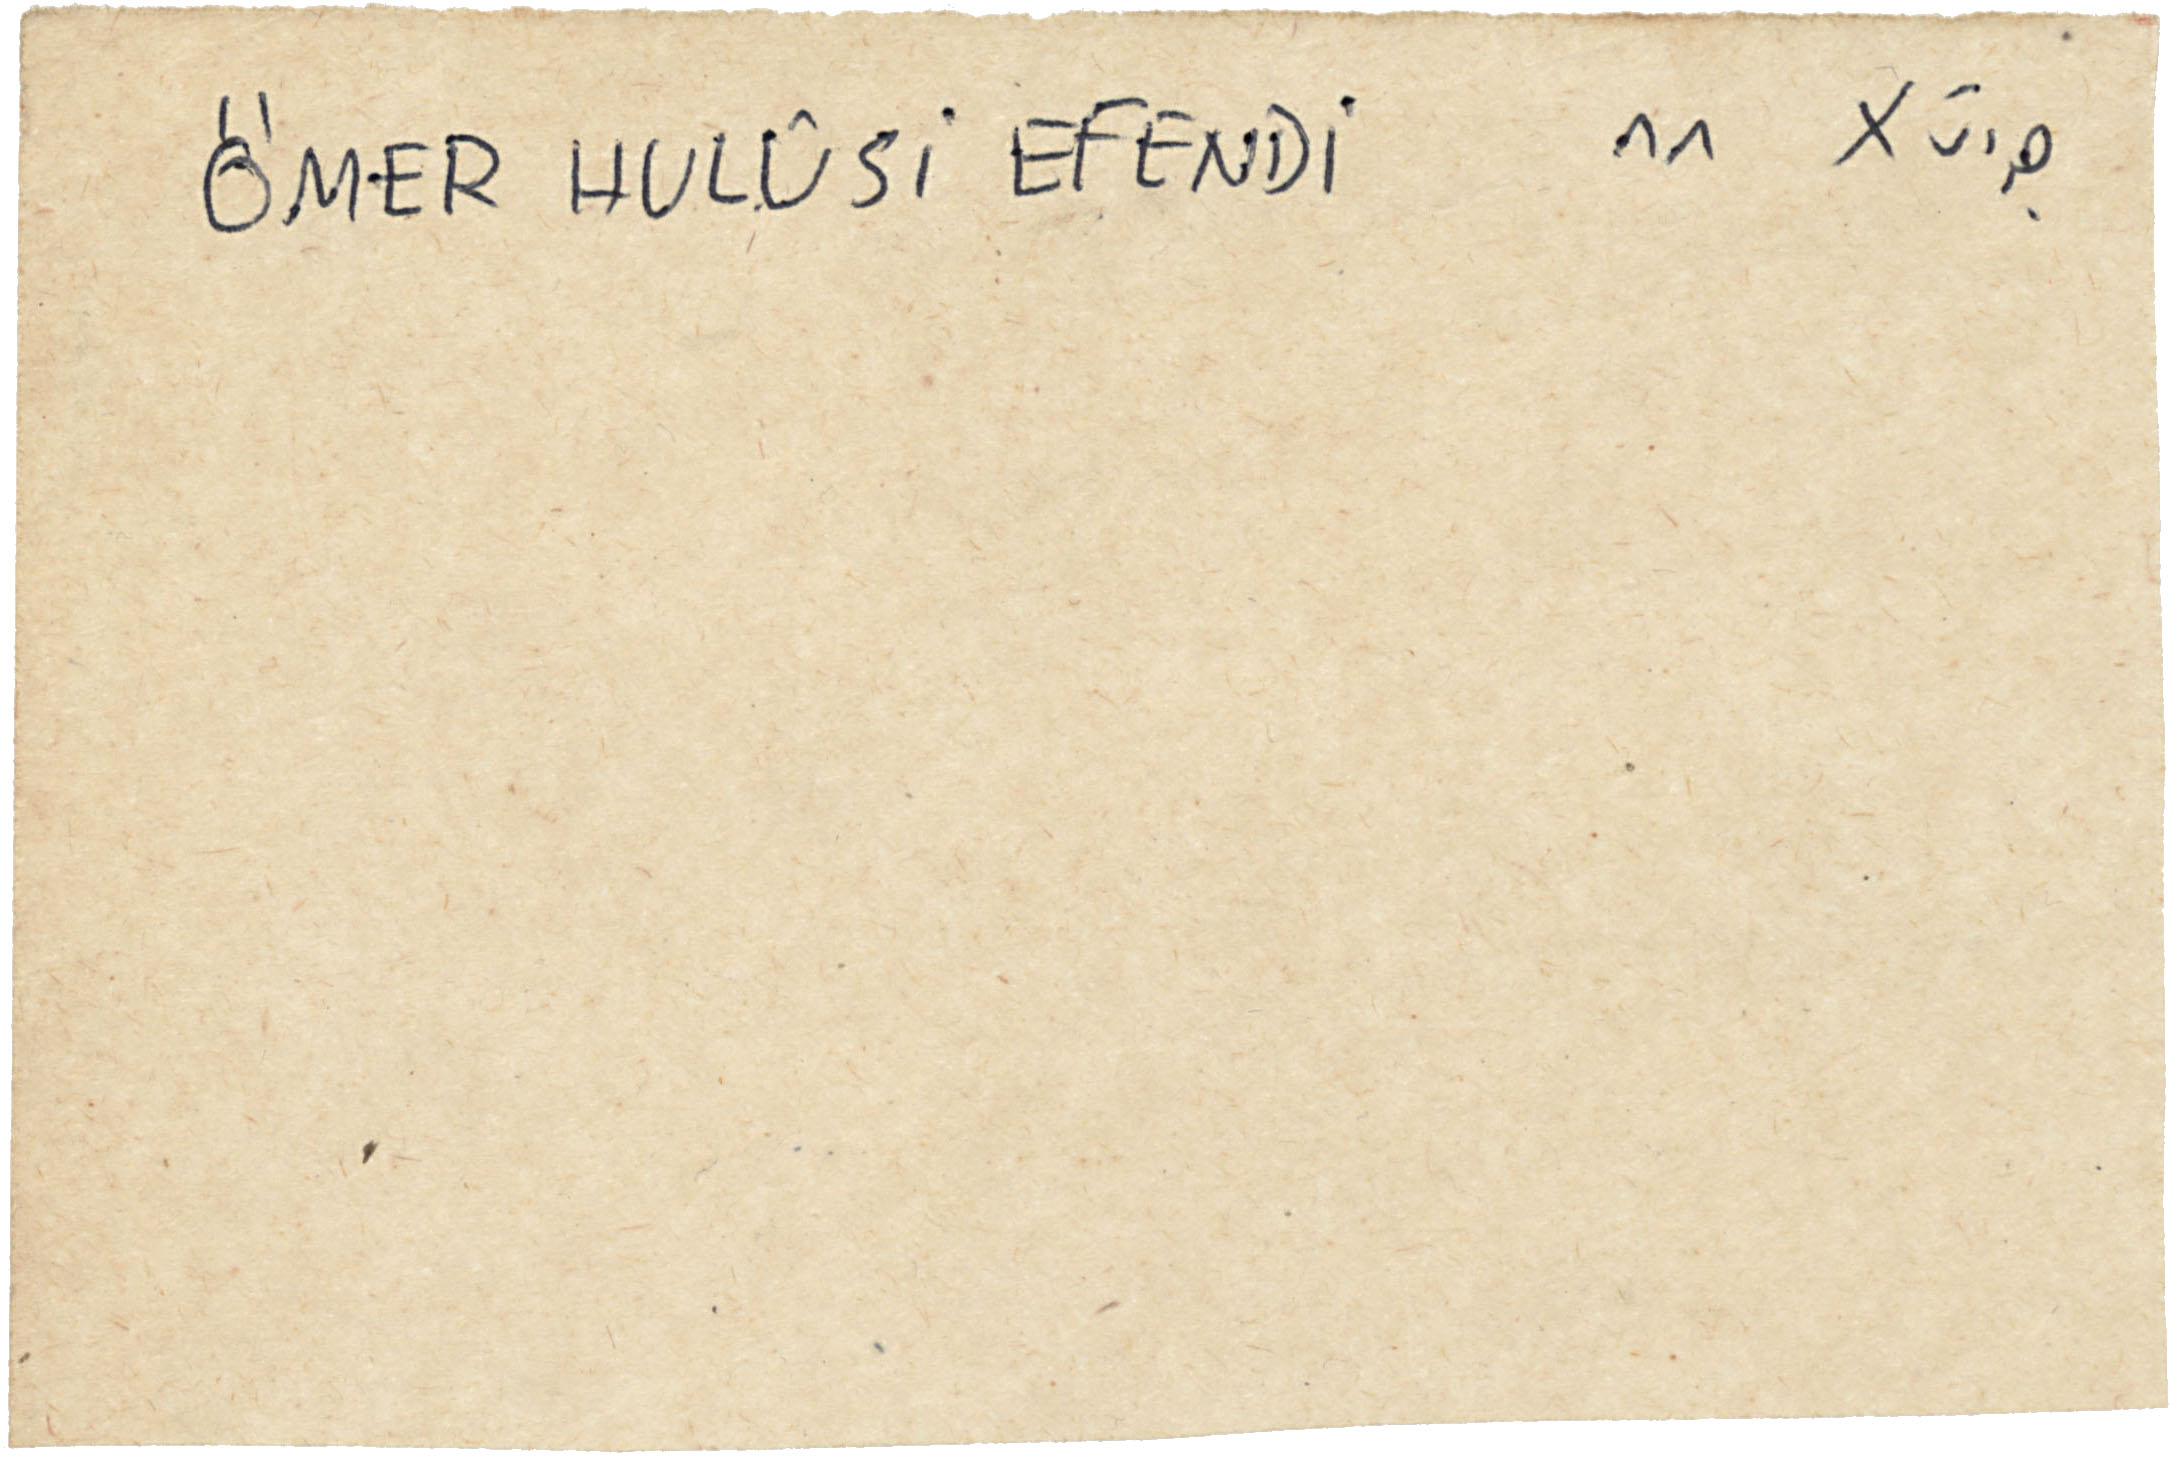 ÖMER HULÛSİ EFENDİ